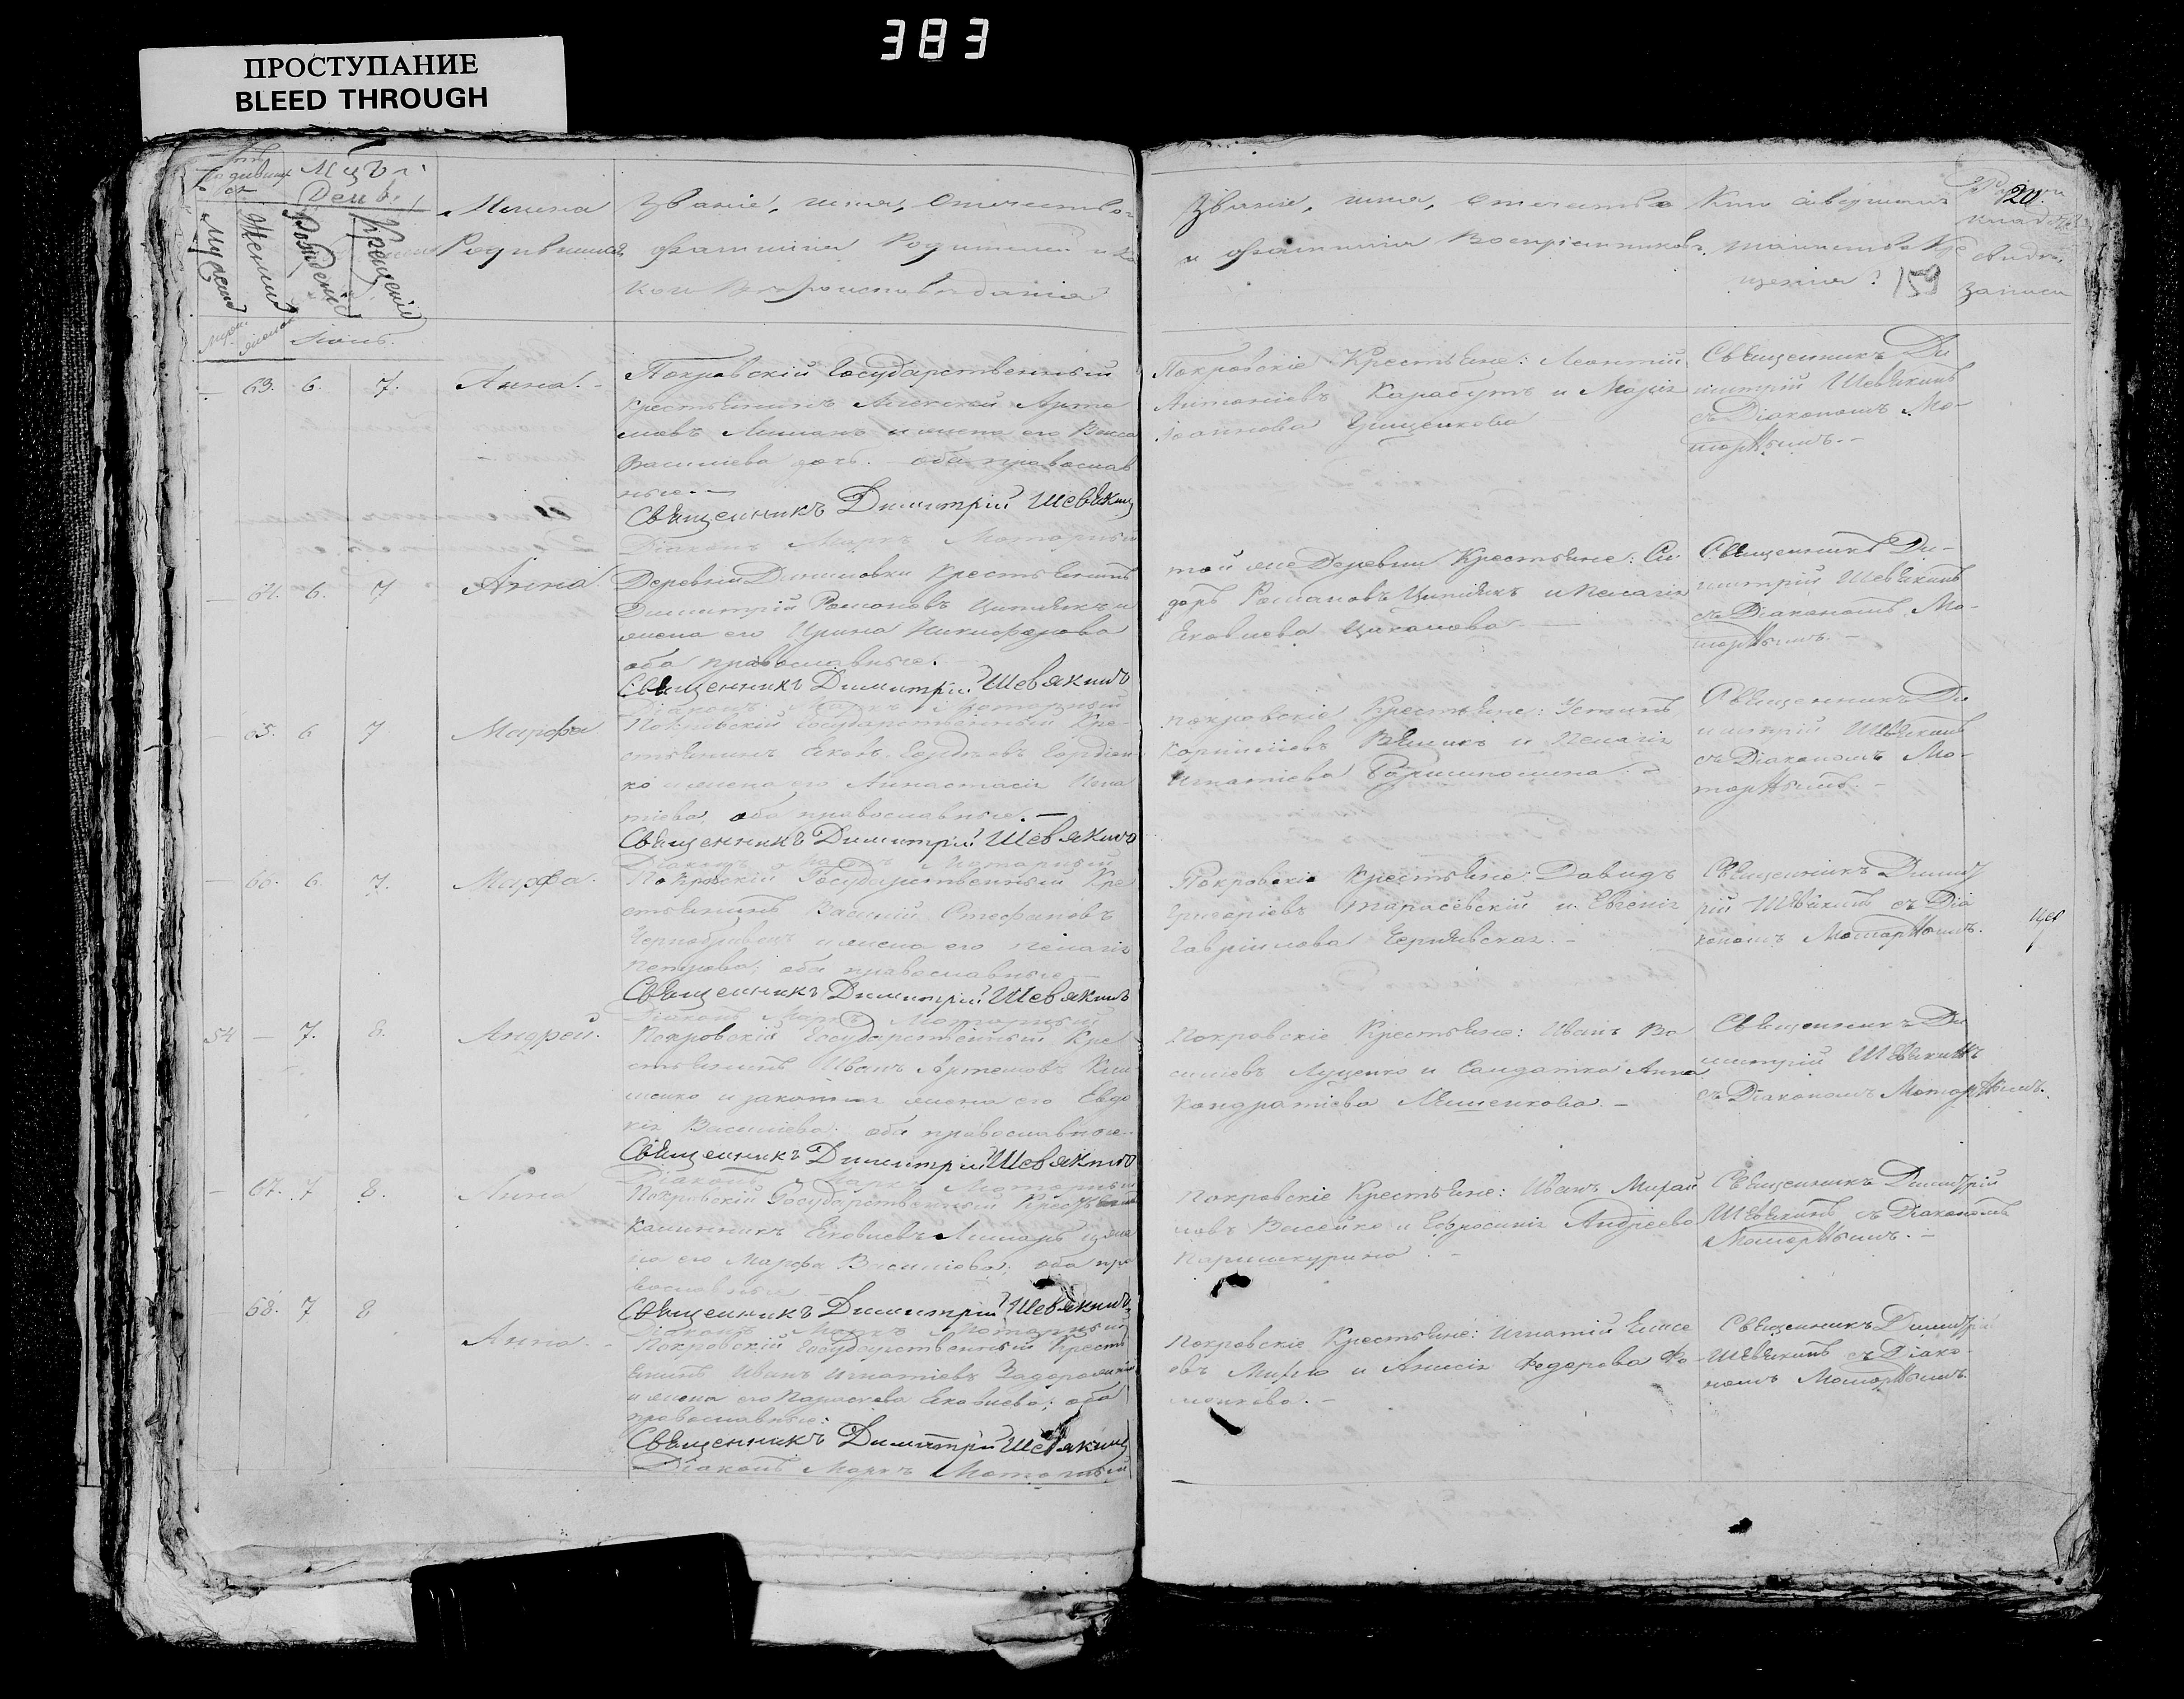 383
ПРОСТУПАНИЕ
BLEED THROUGH
День.
Мужеска
Женска
Рожденія
Крещенія
Имена
Родившихся
Званіе, имя, Отчество
фамилія Родителей и ка
кого Вѣроисповѣданія
Званіе, имя, Отчество
и фамилія Воспріемниковъ.
Кто совершалъ
таинство Кре
щенія?
159
20.
записи
— 63. 6. 7. Анна. -
Покровскій Государственный
крестьянинъ Алексей Арте
мовъ Лиманъ и жена его Васса
Василіева дочь. оба православ
ные. —
Священникъ Димитрій Шевякинъ
Діаконъ Маркъ Моторный
Покровскіе Крестьяне: Леонтій
Антоніевъ Карабутъ и Марія
Іоаннова Грищенкова
Священникъ Ди
митрій Шевякинъ
съ Діакономъ Мо-
торнымъ. -
— 64. 6. 7 Анна.
Деревни Даниловки Крестьянинъ
Димитрій Романовъ и
жена его Ирина Никифорова
оба православные.
Священникъ Димитрій Шевякинъ
Діаконъ Маркъ Моторный
той же Деревни Крестьяне: Си
доръ Романовъ и Пелагія
Яковлева Цыкалова —
Священникъ Ди-
митрій Шевякинъ
съ Діакономъ Мо-
торнымъ. -
— 65. 6 7 Марфа
Покровскій Государственный Кре-
стьянинъ Яковъ Гордѣевъ Гордіен
ко и жена его Анастасія Игна
тіева, оба православные. —
Священникъ Димитрій Шевякинъ
Діаконъ Маркъ Моторный
Покровскіе Крестьяне: Устинъ
Корниліевъ и Пелагія
Игнатіева
Священникъ Ди
митрій Шевякинъ
съ Діакономъ Мо-
торнымъ. -
— 66. 6. 7. Марфа.
Покровскій Государственный Кре
стьянинъ Василій Стефановъ
Чернобривецъ и жена его Пелагія
Петрова; оба православные —
Священникъ Димитрій Шевякинъ
Діаконъ Маркъ Моторный
Покровскіе Крестьяне: Давидъ
Григоріевъ Тарасевскій и Евгенія
Гавріилова Чернявская. -
Священникъ Димит
рій Шевякинъ съ Діа
кономъ Моторнымъ.
54 — 7. 8. Андрей.
Покровскій Государственный Кре
стьянинъ Иванъ Артемовъ Кли
менко и законная жена его Евдо
кія Василіева: оба православные.
Священникъ Димитрій Шевякинъ
Діаконъ Маркъ Моторный
Покровскіе Крестьяне: Иванъ Ва
силіевъ Луценко и Солдатка Анна
Кондратіева -
Священникъ Ди
митрій Шевякинъ
съ Діакономъ Моторнымъ.
— 67. 7 8. Анна
Покровскій Государственный Крестьянинъ
Калинникъ Яковлевъ Лимарь и же
на его Марфа Василіева; оба пра
вославные
Священникъ Димитрій Шевякинъ
Діаконъ Маркъ Моторный
Покровскіе Крестьяне: Иванъ Михай
ловъ и Ефросинія Андреева
Священникъ Димитрій
Шевякинъ съ Діакономъ
Моторнымъ. -
— 68. 7 8 Анна. -
Покровскій Государственный Кресть
янинъ Иванъ Игнатіевъ Задорожній
и жена его Параскева Яковлева; оба
православные:
Священникъ Димитрій Шевякинъ
Діаконъ Маркъ Моторный
Покровскіе Крестьяне: Игнатій Елисе
евъ и Анисія Федорова Фо
менкова. -
Священникъ Димитрій
Шевякинъ съ Діако-
номъ Моторнымъ.